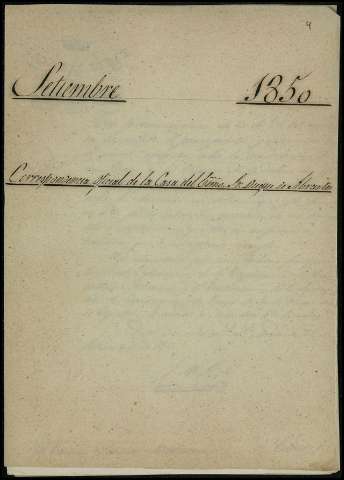 Setiembre 1850
Correspondencia oficial de la Casa del Exmo. Sr. Duque de Abrantes